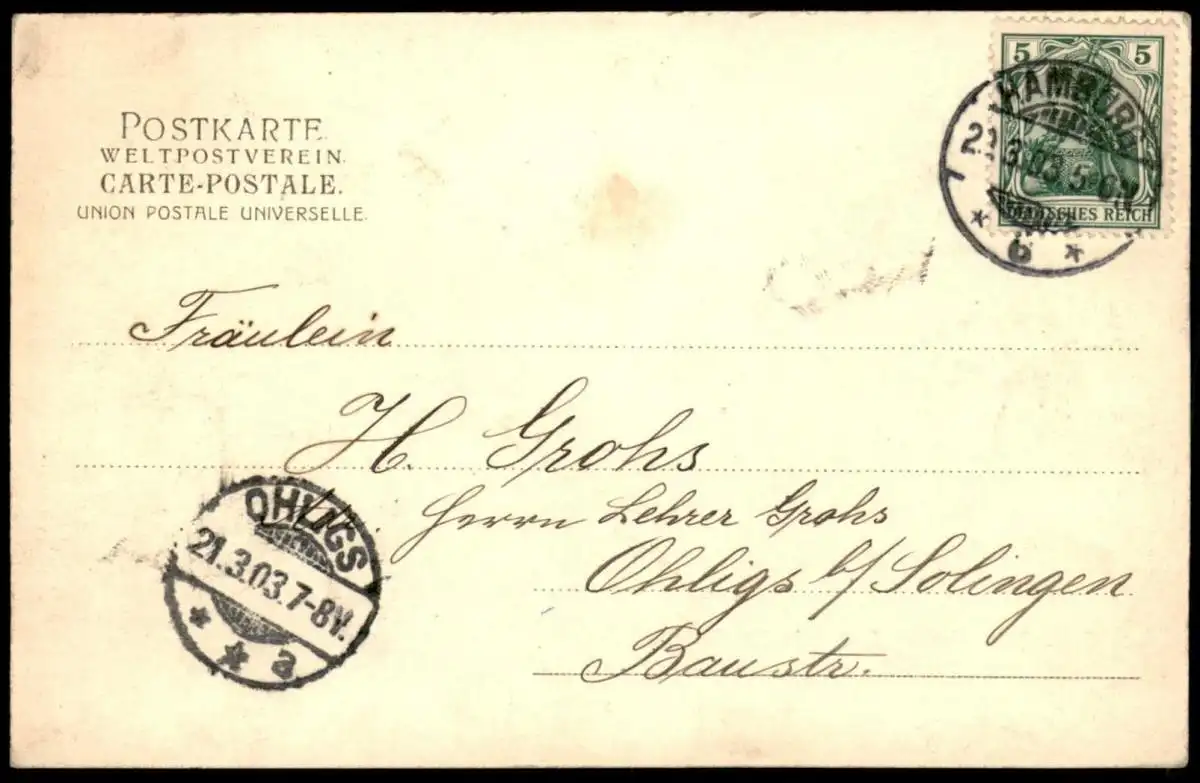 POSTKARTE.
WELTPOSTVEREIN.
CARTE-POSTALE.
UNION POSTALE UNIVERSELLE.
5 5
DEUTSCHES REICH
HAMBURG
.3.03.5-6N.
* 6 *
Fräulein
H. Grohs
Herrn Lehrer Grohs
Ohligs b/ Solingen
Baustr.
OHLIGS
21.3.03.7-8V.
* * a